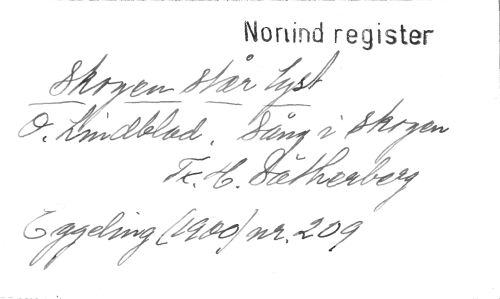 Nonind register
Skogen står tyst
O. Lindblad. Sång i skogen
Tr. H. Sätherberg
Eggeling (1900) nr. 209